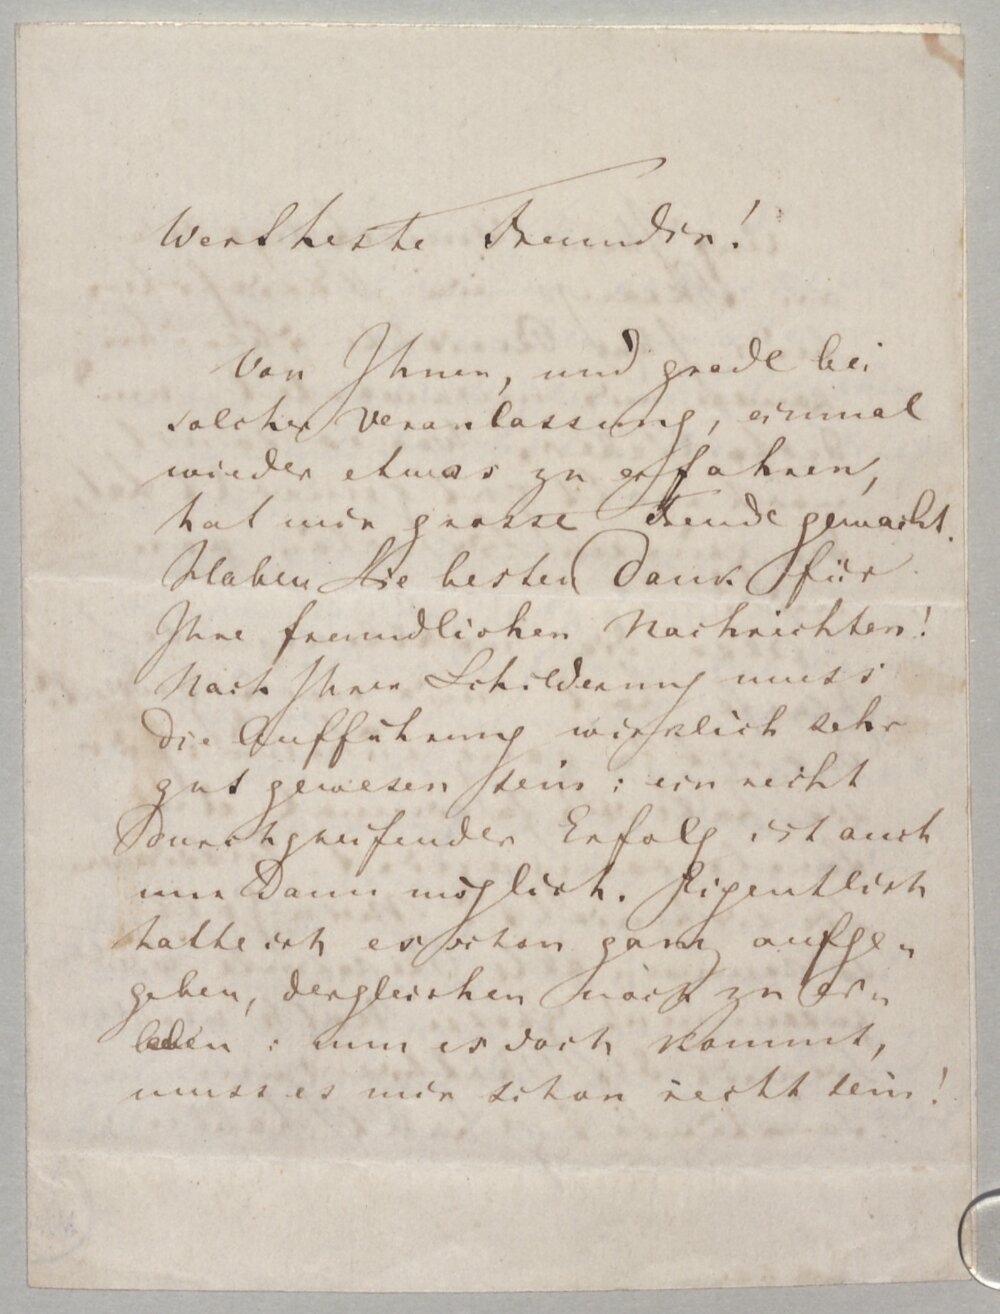 Wertheste Freundin!
Von Ihnen, und grade bei
solcher Veranlassung, einmal
wieder etwas zu erfahren,
hat mir grosse Freude gemacht.
Haben Sie besten Dank für
Ihre freundlichen Nachrichten!
Nach Ihrer Schilderung muss
die Aufführung wirklich sehr
gut gewesen sein: ein recht
durchgreifender Erfolg ist auch
nur dann möglich. Eigentlich
hatte ich es schon ganz aufge-
geben, dergleichen noch zu er-
leben: nun es doch kommt,
muss es mir schon recht sein!